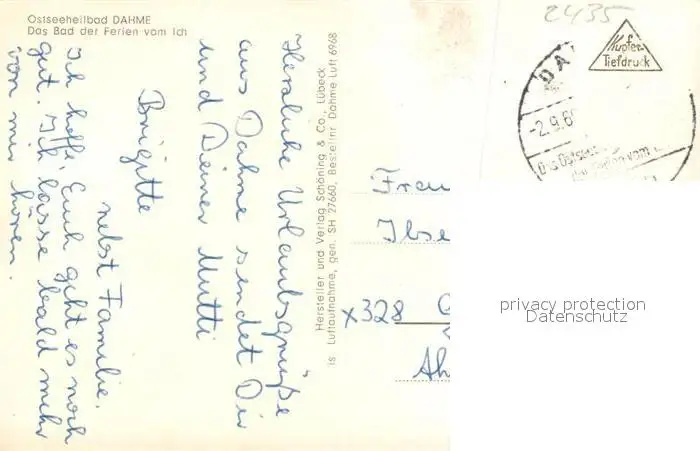 Ostseeheilbad DAHME
Das Bad der Ferien vom Ich
Herzliche Urlaubsgrüße
aus Dahme sendet Dir
und Deiner Mutti
Brigitte
nebst Familie.
Ich hoffe, Euch geht es noch
gut. Ich lasse bald mehr
von mir hören.
Hersteller und Verlag Schöning & Co., Lübeck
Luftaufnahme, gen. SH 27660, Bestellnr. Dahme Luft 6968
2435
Kupfer
Tiefdruck
DA
-2.9.6
Das Ostsee
vom
Frau
Ilse
x328
Ah
privacy protection
Datenschutz